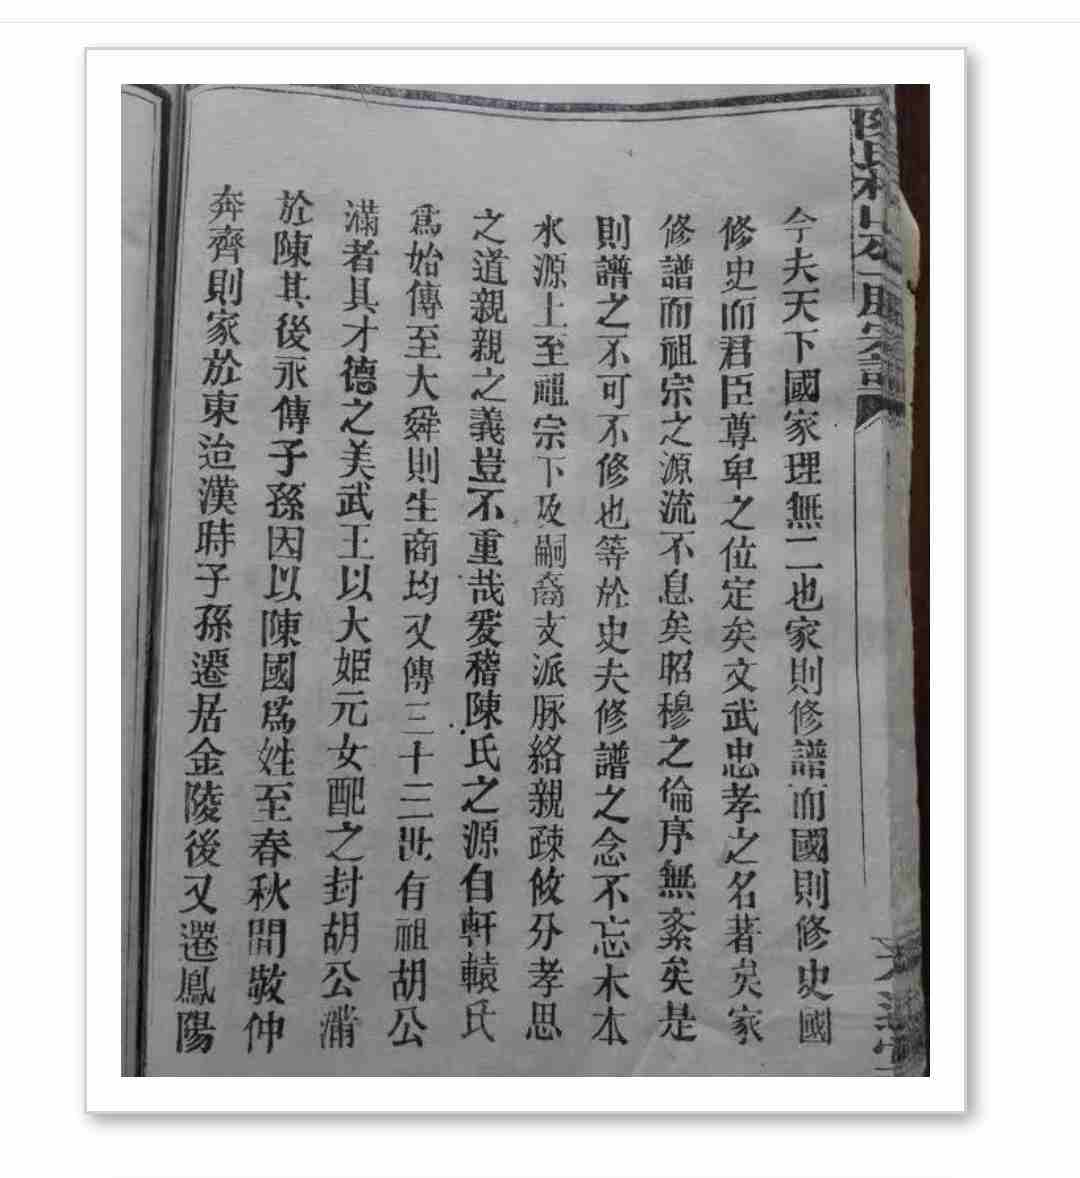 今夫天下國家理無二也家則修譜而國則修史國
修史而君臣尊卑之位定矣文武忠孝之名著矣家
修譜而祖宗之源流不息矣昭穆之倫序無紊矣是
則譜之不可不修也等於史夫修譜之念不忘木本
水源上至祖宗下及嗣裔支派脉絡親疎攸分孝思
之道親親之義豈不重哉爰稽陳氏之源自軒轅氏
爲始傳至大舜則生商均又傳三十三世有祖胡公
滿者具才德之美武王以大姬元女配之封胡公滿
於陳其後永傳子孫因以陳國爲姓至春秋間敬仲
奔齊則家於東迨漢時子孫遷居金陵後又遷鳳陽